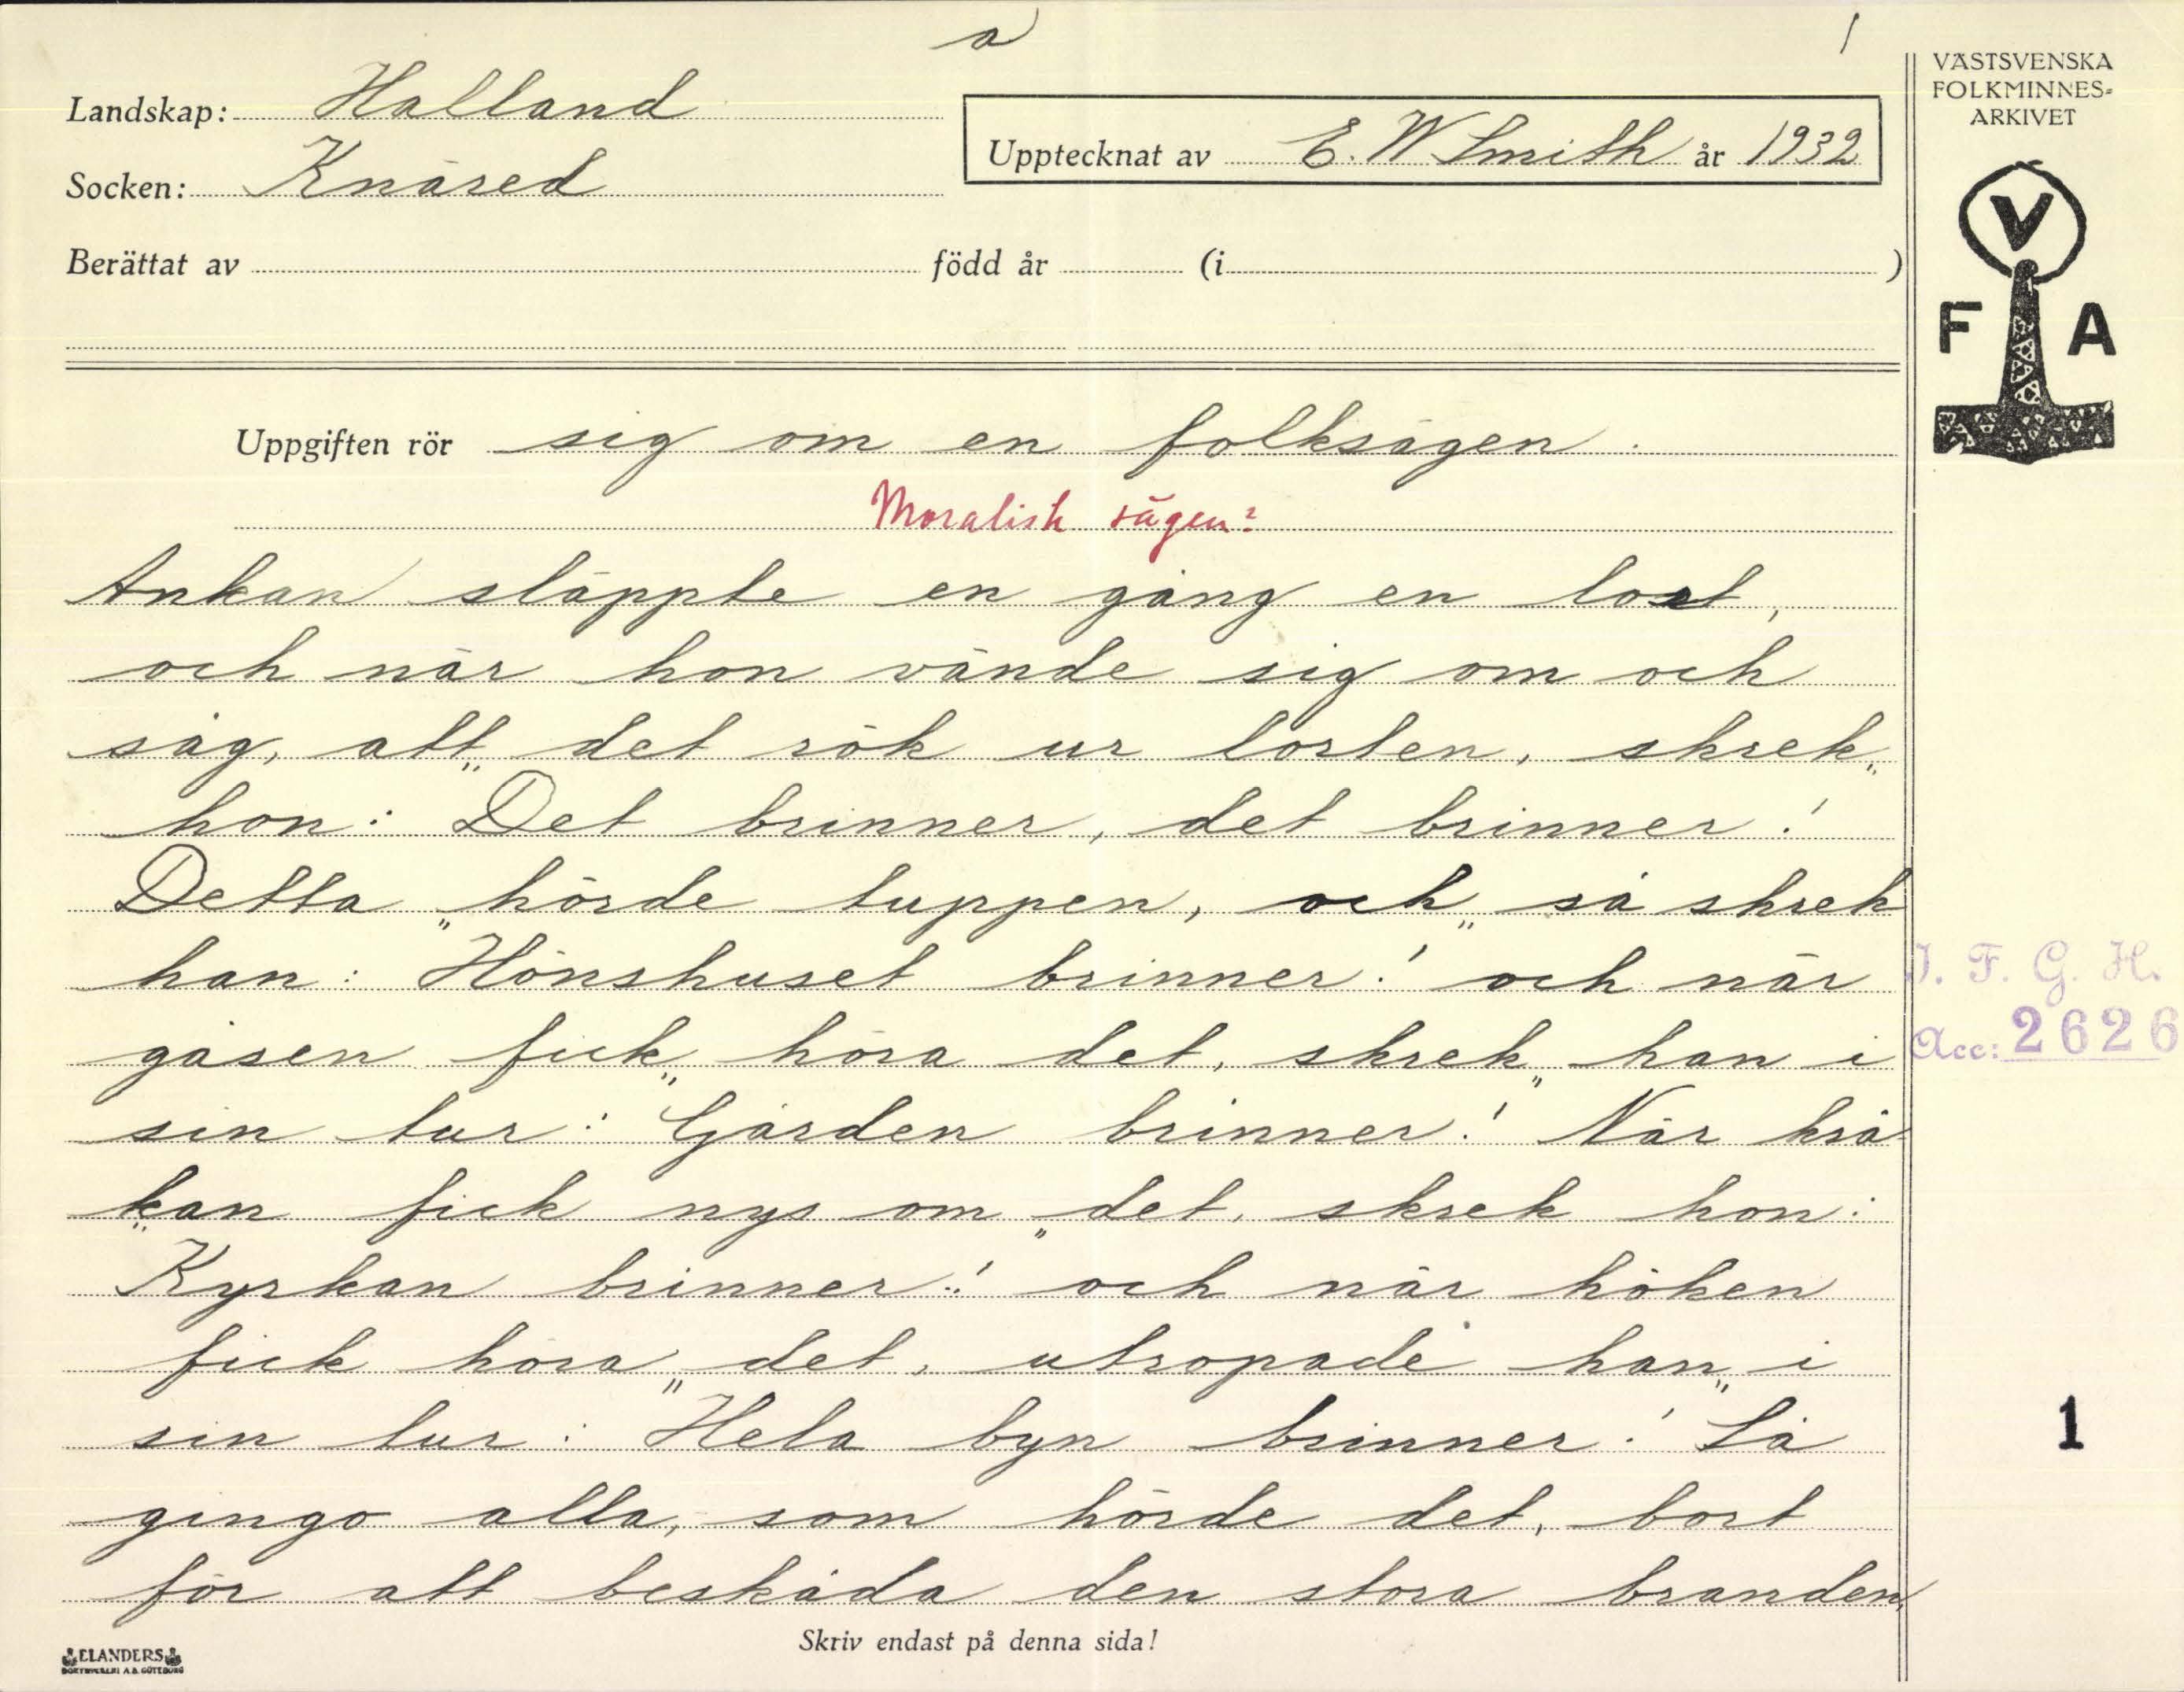 a
1
VÄSTSVENSKA
FOLKMINNES-
ARKIVET
Landskap: Halland
Upptecknat av E. W Smith år 1932
Socken: Knäred
Berättat av född år (i )
V
F A
Uppgiften rör sig om en folksägen.
Moralisk sägen?
Ankan släppte en gång en lort,
och när hon vände sig om och
såg, att det rök ur lorten, skrek
hon: "Det brinner, det brinner!"
Detta hörde tuppen, och så skrek
han: "Hönshuset brinner!" och när
gåsen fick höra det, skrek han i
sin tur: "Gården brinner!" När krå-
kan fick nys om det, skrek hon:
"Kyrkan brinner!" och när höken
fick höra det, utropade han i
sin tur: "Hela byn brinner!" Så
gingo alla, som hörde det, bort
för att beskåda den stora branden,
I. F. G. H.
Acc: 2626
1
Skriv endast på denna sida!
ELANDERS
BOKTRYCKERI A.B. GÖTEBORG